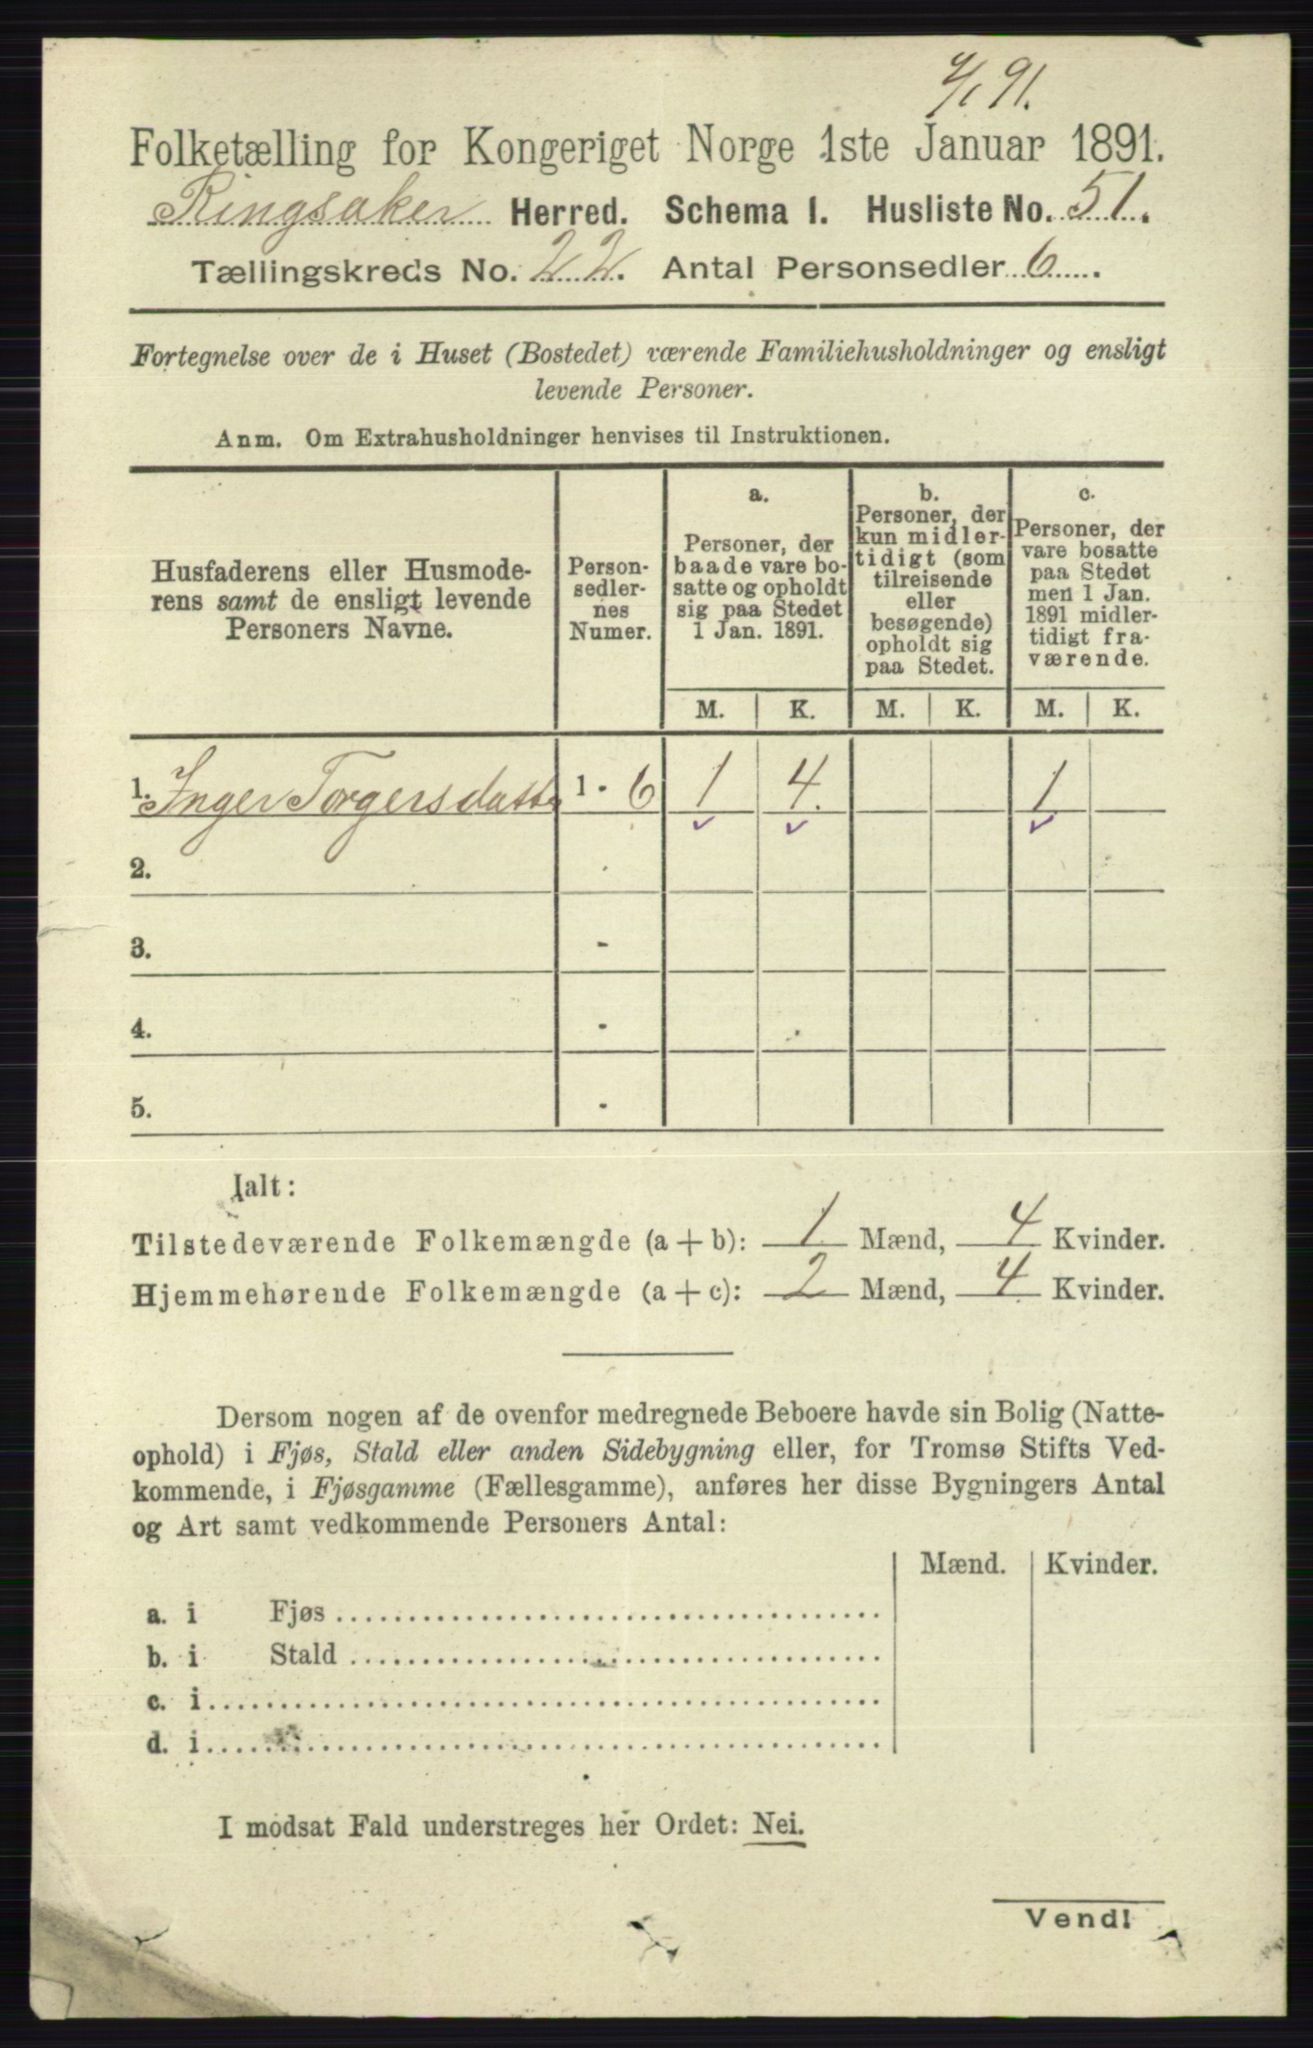 4/1 91.
Folketælling for Kongeriget Norge 1ste Januar 1891.
Ringsaker Herred. Schema I. Husliste No. 51.
Tællingskreds No. 22. Antal Personsedler 6.
Fortegnelse over de i Huset (Bostedet) værende Familiehusholdninger og ensligt
levende Personer.
Anm. Om Extrahusholdninger henvises til Instruktionen.
Husfaderens eller Husmode-
rens samt de ensligt levende
Personers Navne.
Person-
sedler-
nes
Numer.
a.
Personer, der
baade vare bo-
satte og opholdt
sig paa Stedet
1 Jan. 1891.
b.
Personer, der
kun midler-
tidigt (som
tilreisende
eller
besøgende)
opholdt sig
paa Stedet.
c.
Personer, der
vare bosatte
paa Stedet
men 1 Jan.
1891 midler-
tidigt fra-
værende.
M. K. M. K. M. K.
1. Inger Torgersdatter 1 - 6 1 4. 1
2.
3. -
4. -
5. -
Ialt:
Tilstedeværende Folkemængde (a + b): 1 Mænd, 4 Kvinder.
Hjemmehørende Folkemængde (a + c): 2 Mænd, 4 Kvinder.
Dersom nogen af de ovenfor medregnede Beboere havde sin Bolig (Natte-
ophold) i Fjøs, Stald eller anden Sidebygning eller, for Tromsø Stifts Ved-
kommende, i Fjøsgamme (Fællesgamme), anføres her disse Bygningers Antal
og Art samt vedkommende Personers Antal:
Mænd. Kvinder.
a. i Fjøs
b. i Stald
c. i
d. i
I modsat Fald understreges her Ordet: Nei.
Vend!